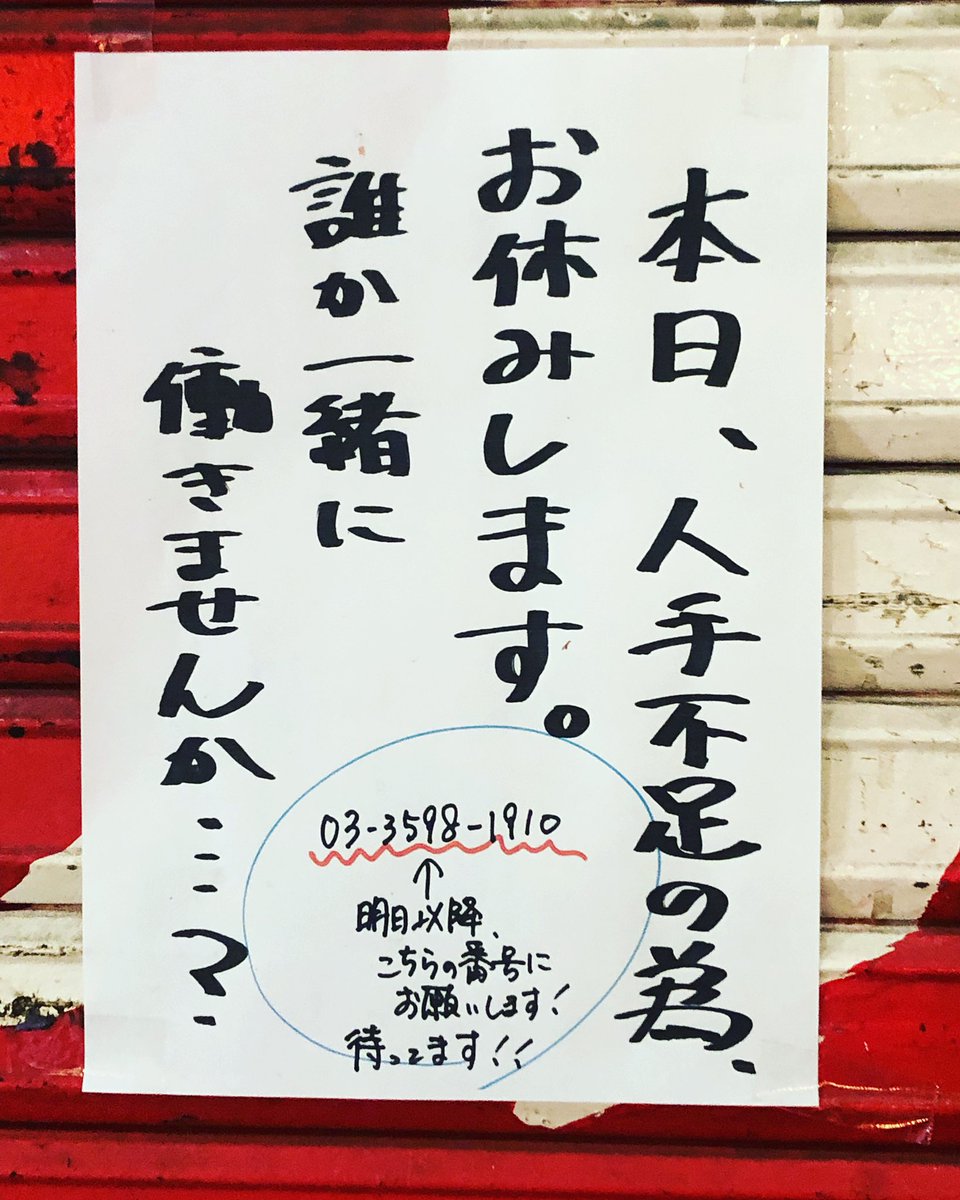 本日、人手不足の為、
お休みします。
誰か一緒に
働きませんか…?
03-3598-1910
↑
明日以降、
こちらの番号に
お願いします!
待ってます!!